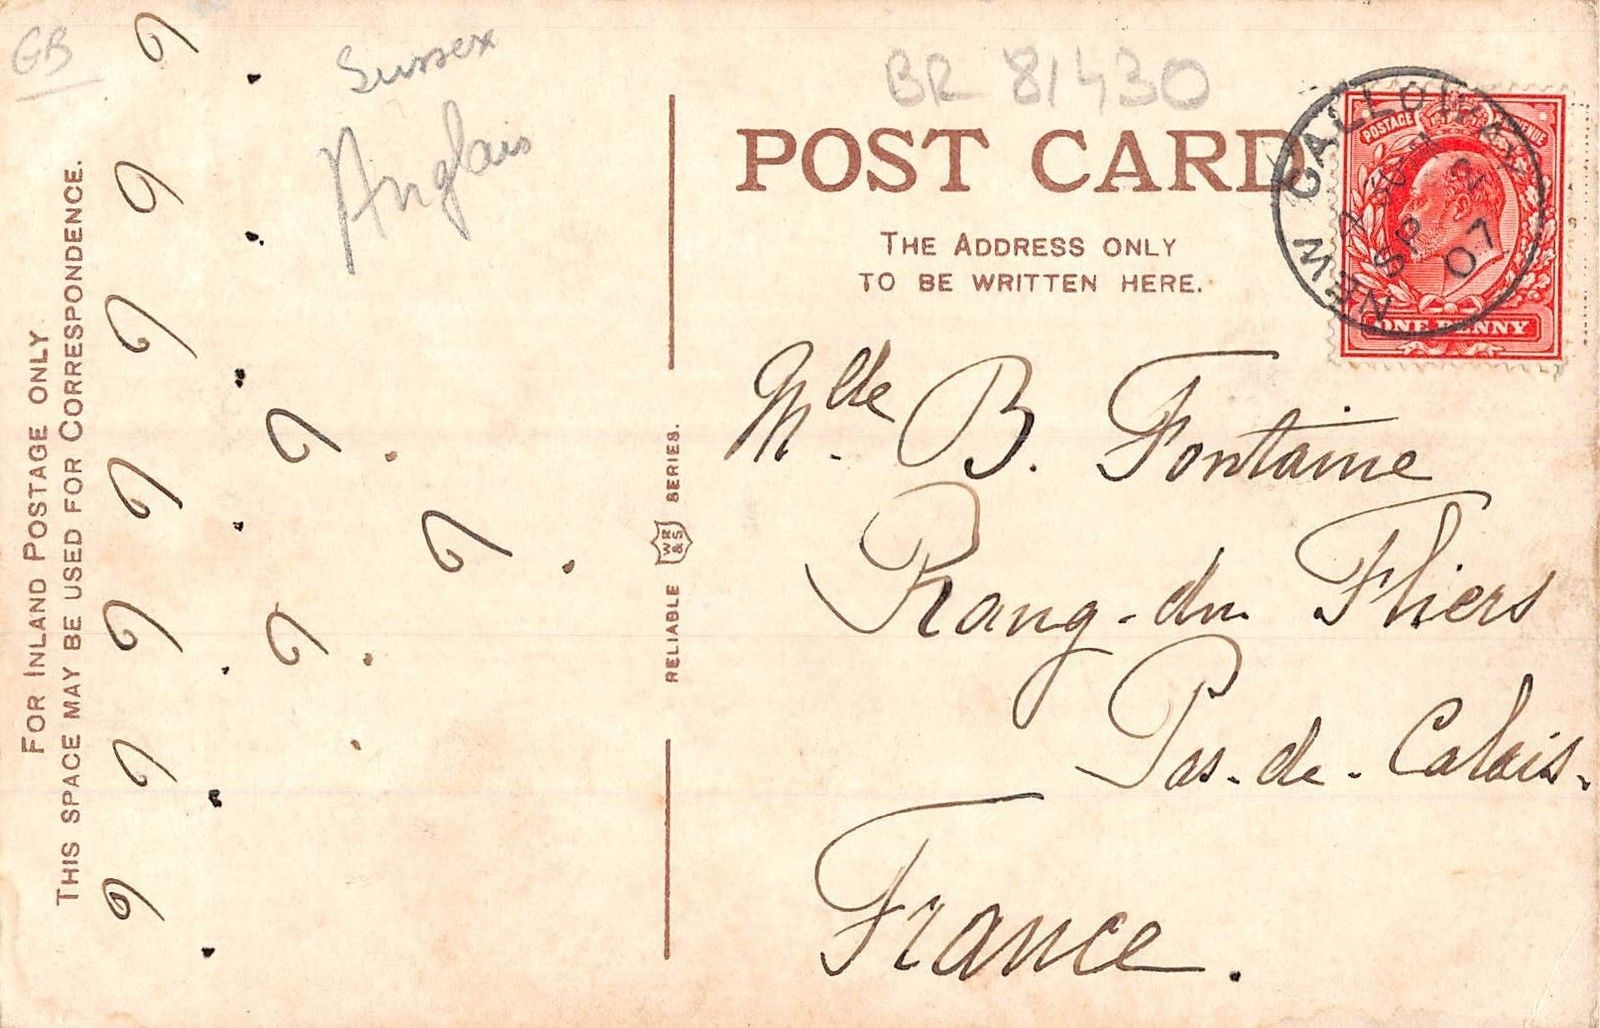 GB
Sussex
Anglais
BR 81430
POST CARD
THE ADDRESS ONLY
TO BE WRITTEN HERE.
FOR INLAND POSTAGE ONLY
THIS SPACE MAY BE USED FOR CORRESPONDENCE.
RELIABLE WR &S SERIES.
POSTAGE REVENUE
ONE PENNY
NEW GALLOWAY
SP 2
07
Mlle B. Fontaine
Rang-du Fliers
Pas-de-Calais.
France.